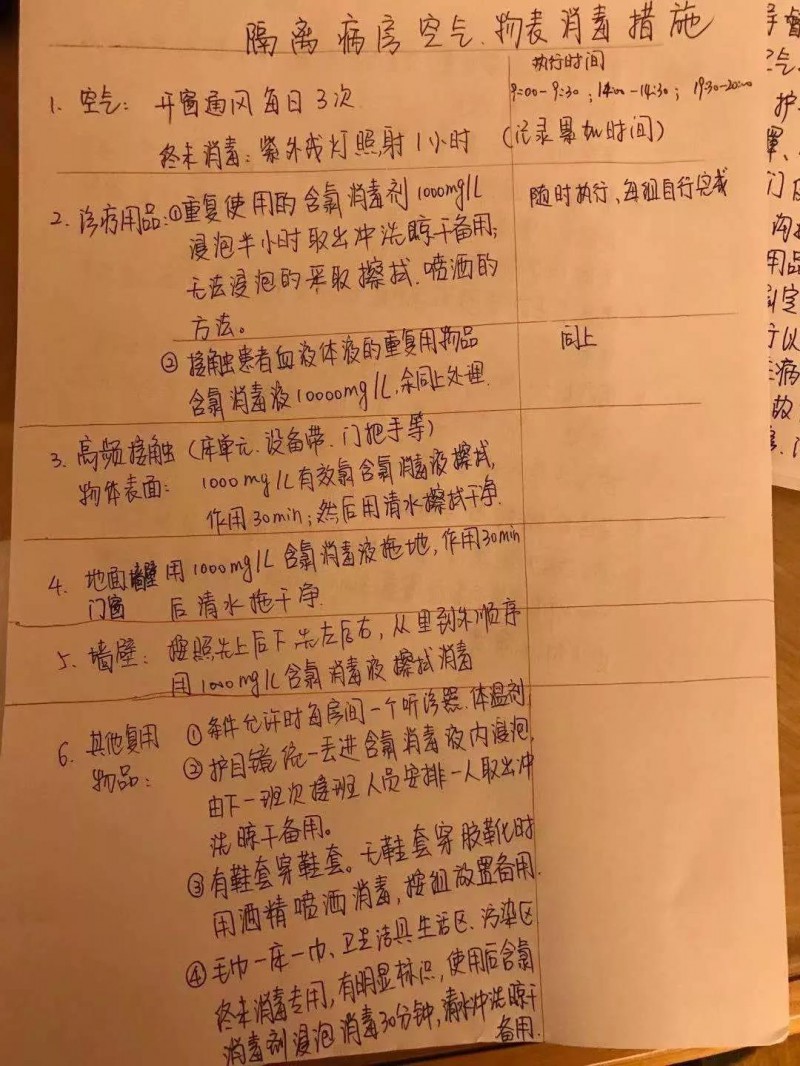 隔离病房空气、物表消毒措施
执行时间
1. 空气: 开窗通风每日3次 9:00-9:30; 14:00-14:30; 19:30-20:00
终末消毒: 紫外线灯照射1小时 (记录累加时间)
2. 诊疗用品: ①重复使用的含氯消毒剂1000mg/L 随时执行、每组自行完成
浸泡半小时取出冲洗晾干备用;
无法浸泡的采取擦拭、喷洒的
方法。
② 接触患者血液体液的重复用物品 同上
含氯消毒液10000mg/L,余同上处理.
3. 高频接触 (床单元、设备带、门把手等)
物体表面: 1000mg/L有效氯含氯消毒液擦拭,
作用30min; 然后用清水擦拭干净.
4. 地面墙壁 用1000mg/L含氯消毒液拖地,作用30min
门窗 后清水拖干净.
5. 墙壁: 按照先上后下,先左后右,从里到外顺序
用1000mg/L含氯消毒液擦拭消毒
6. 其他复用 ① 条件允许时每房间一个听诊器、体温剂
物品: ② 护目镜统一丢进含氯消毒液内浸泡,
由下一班次接班人员安排一人取出冲
洗晾干备用。
③ 有鞋套穿鞋套。无鞋套穿胶靴化时
用酒精喷洒消毒,按组放置备用.
④ 毛巾一床一巾、卫生洁具生活区、污染区
终末消毒专用,有明显标识,使用后含氯
消毒剂浸泡消毒30分钟,清水冲洗晾干
备用.
护
门
用品
定
以
病